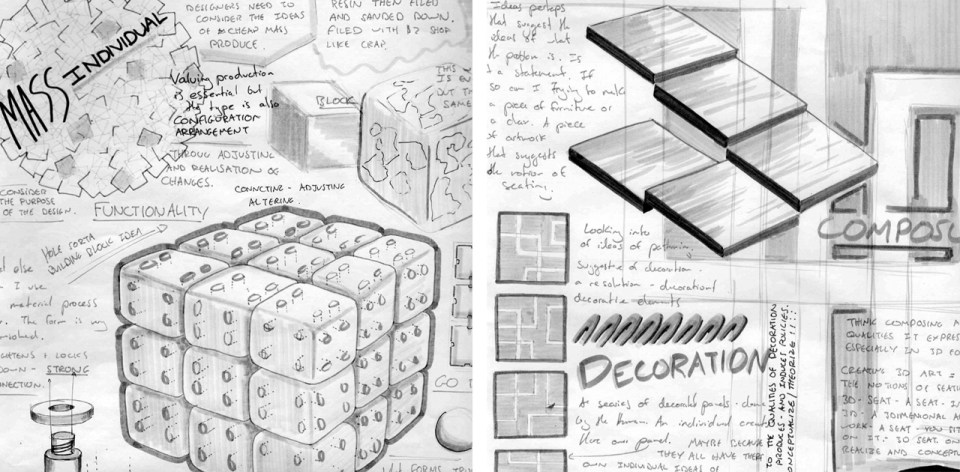 MASS INDIVIDUAL
DESIGNERS NEED TO
CONSIDER THE IDEAS
OF CHEAP MASS
PRODUCE.
RESIN THEN FILED
AND SANDED DOWN.
FILLED WITH $2 SHOP
LIKE CRAP.
Valuing production
is essential but
the type is also
CONFIGURATION
ARRANGEMENT
THROUGH ADJUSTING
AND REALISATION OF
CHANGES.
BLOCK
THIS
SAME
CONSIDER
THE PURPOSE
OF THE DESIGN.
FUNCTIONALITY
CONNCTING - ADJUSTING
ALTERING.
MORE SORTA
BUILDING BLOCK IDEA
else
I use
material process
The form is my
+ LOCKS
DOWN - STRONG
GO
FORMS
Ideas perhaps
that suggest the
ideas of what
the problem is. Is
a statement. If
so am I trying to make
a piece of furniture or
a chair. A piece
of artwork
that suggests
the notion of
seating.
COMPOSI
Looking into
ideas of patterning.
Suggestive of decoration.
a resolution - decorational
decorative elements
DECORATION
A series of decorative panels - done
by the human. An individual creates
their own panel. MAYBE BECAUSE
THEY ALL HAVE THEIR
OWN INDIVIDUAL IDEAS OF
TO THE QUALITIES OF DECORATION?
PRODUCES - AND INDUCES POLICIES.
CONCEPTUALIZE/THEORIZE!!!!
THINK COMPOSING
QUALITIES IT EXPRESS
ESPECIALLY IN 3D FO
CREATING 3D ART =
THE NOTIONS OF SEATIN
3D - SEAT - A SEAT - IS
2D - A 2DIMENSIONAL A
WORK - A SEAT - YOU SIT
ON IT. SO SEAT ON
REALIZE AND CONCEPT